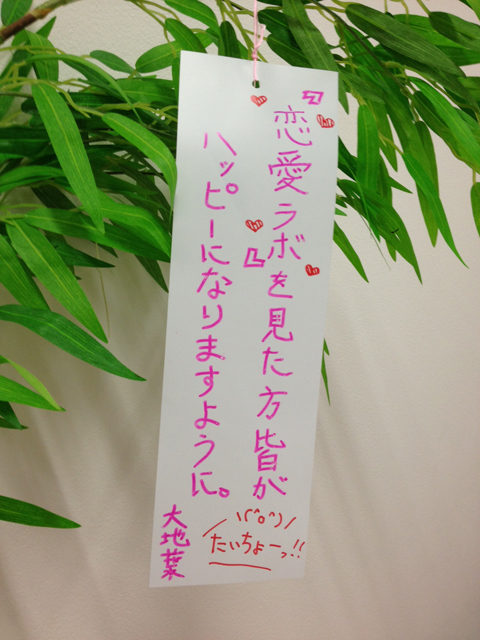 『恋愛ラボ』を見た方皆が
ハッピーになりますように。
大地葉
\(^o^)/
たいちょーっ!!